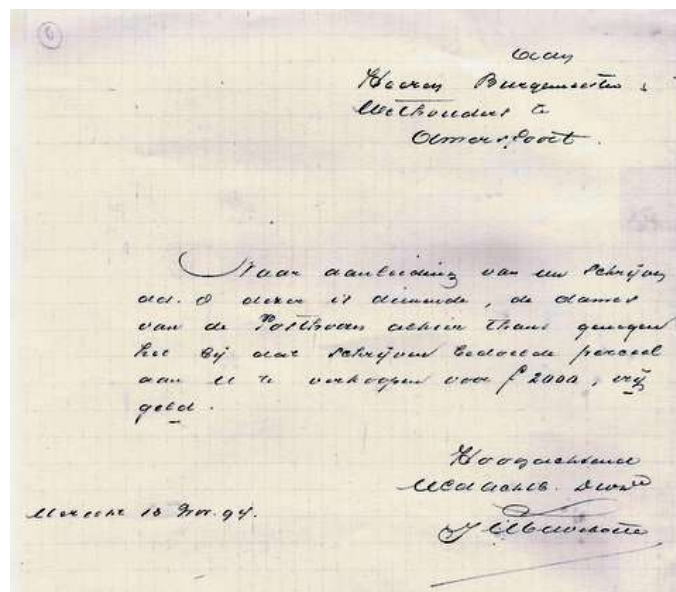 Aan
Heeren Burgemeester &
Wethouders te
Amersfoort.
Naar aanleiding van uw schrijven
dd. 8 dezer is dienende, de dames
van de Posthoorn achter thans genegen
het bij dat schrijven bedoelde perceel
aan U te verkoopen voor f 2000, vrij
geld.
Hoogachtend
UEd achtb. Dw
18 Nov. 94.